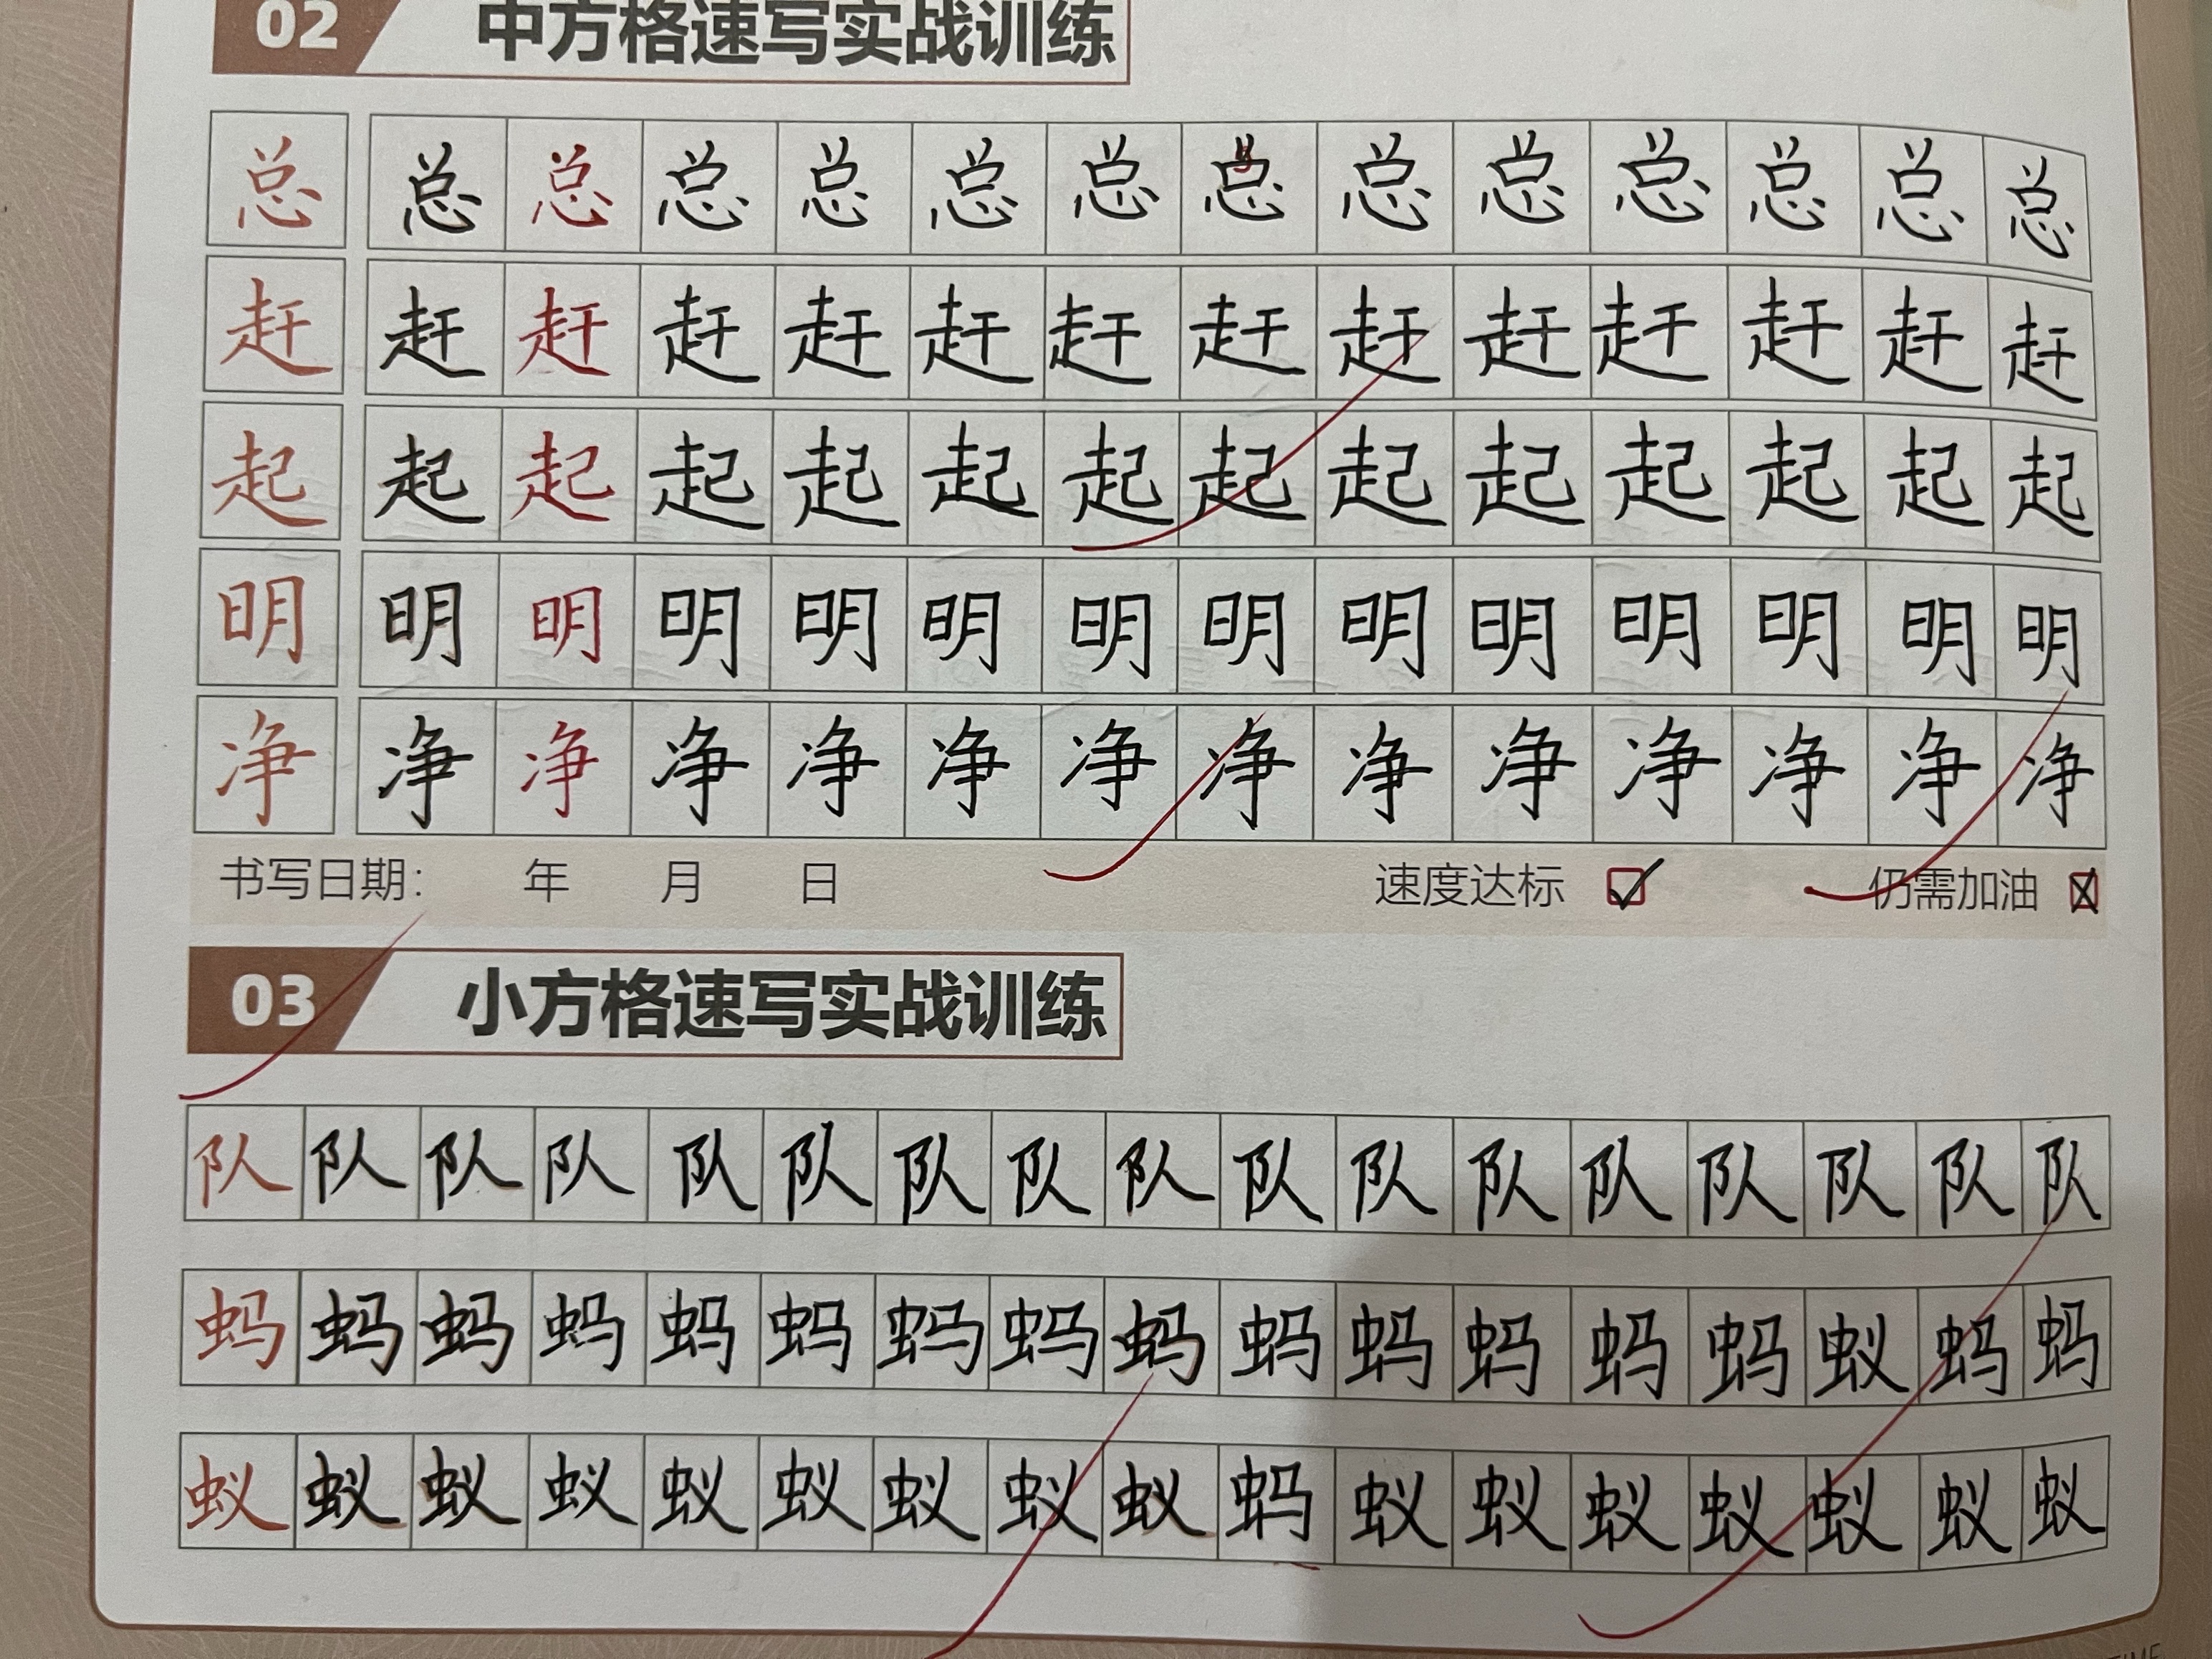 02 中方格速写实战训练
总 总 总 总 总 总 总 总 总 总 总 总 总 总
赶 赶 赶 赶 赶 赶 赶 赶 赶 赶 赶 赶 赶 赶
起 起 起 起 起 起 起 起 起 起 起 起 起 起
明 明 明 明 明 明 明 明 明 明 明 明 明 明
净 净 净 净 净 净 净 净 净 净 净 净 净 净
书写日期： 年 月 日 速度达标 仍需加油
03 小方格速写实战训练
队 队 队 队 队 队 队 队 队 队 队 队 队 队 队 队 队
蚂 蚂 蚂 蚂 蚂 蚂 蚂 蚂 蚂 蚂 蚂 蚂 蚂 蚂 蚁 蚂 蚂
蚁 蚁 蚁 蚁 蚁 蚁 蚁 蚁 蚁 蚂 蚁 蚁 蚁 蚁 蚁 蚁 蚁